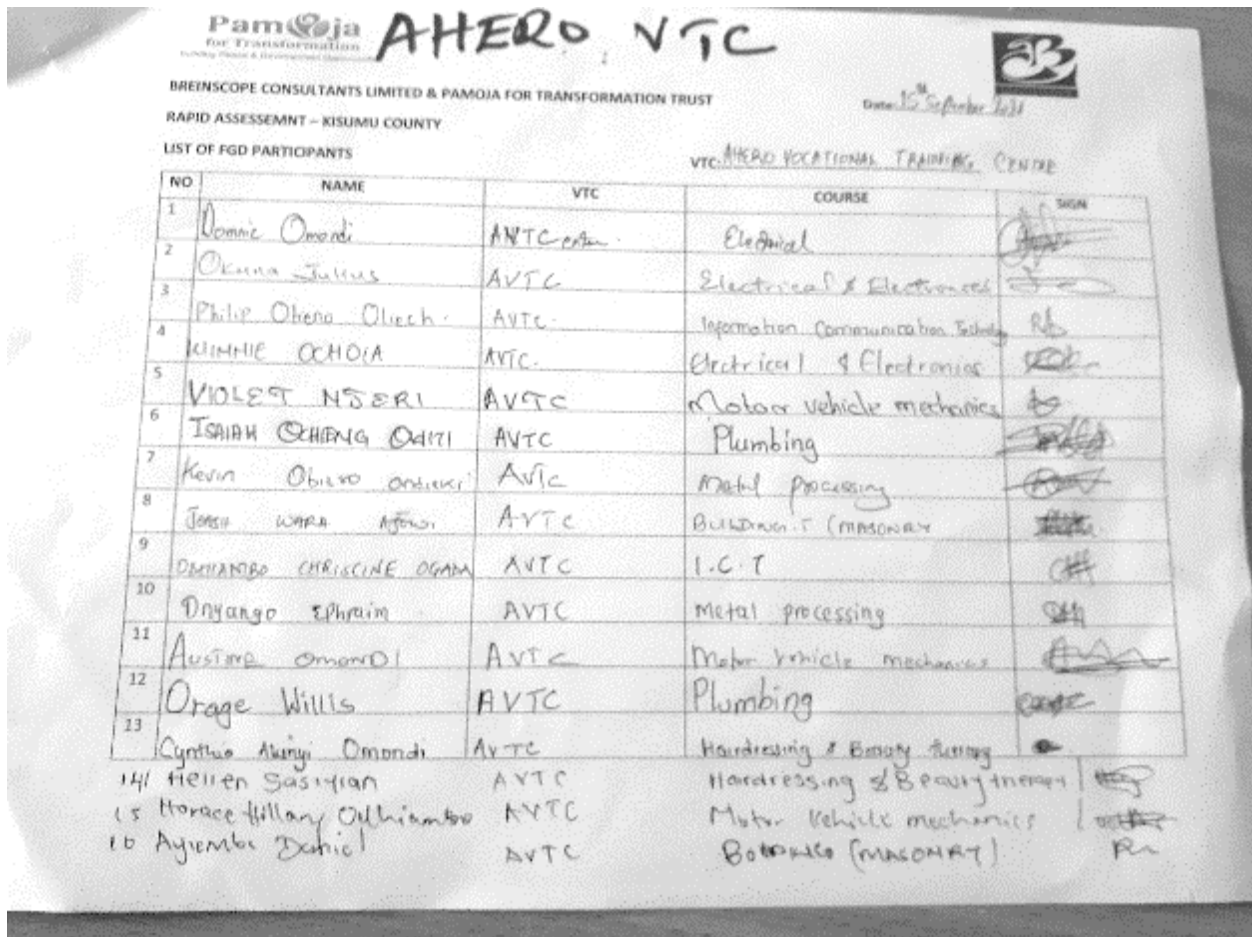 Pamoja
for Transformation
AHERO VTC
BREINSCOPE CONSULTANTS LIMITED & PAMOJA FOR TRANSFORMATION TRUST
Date: 15th September 2021
RAPID ASSESSEMNT – KISUMU COUNTY
LIST OF FGD PARTICIPANTS
VTC: AHERO VOCATIONAL TRAINING CENTRE
NO NAME VTC COURSE SIGN
1 Dominic Omondi Electrical
2 Okuna Julius AVTC Electrical & Electronces
3 Philip Otieno Oliech. AVTC. Information Communication Technology
4 WINNIE OCHOLA AVTC. Electrical & Electronics
5 VIOLET NJERI AVTC Motoor vehicle mechanics
6 ISAIAH OCHIENG ODITI AVTC Plumbing
7 Kevin AVTC Metal processing
8 WARA AVTC BUILDING.T (MASONRY
9 CHRISCINE OGADA AVTC I.C.T
10 Onyango Ephraim AVTC Metal processing
11 Austine OMONDI AVTC Motor vehicle mechanics
12 Orage Willis AVTC Plumbing
13 Cynthia Akinyi Omondi AVTC Hairdressing & Beauty
14 Hellen Sasiyian AVTC Hairdressing & Beauty therapy
15 Horace Hillary Odhiambo AVTC Motor Vehicle mechanics
16 Ayiemba Daniel AVTC (MASONRY)